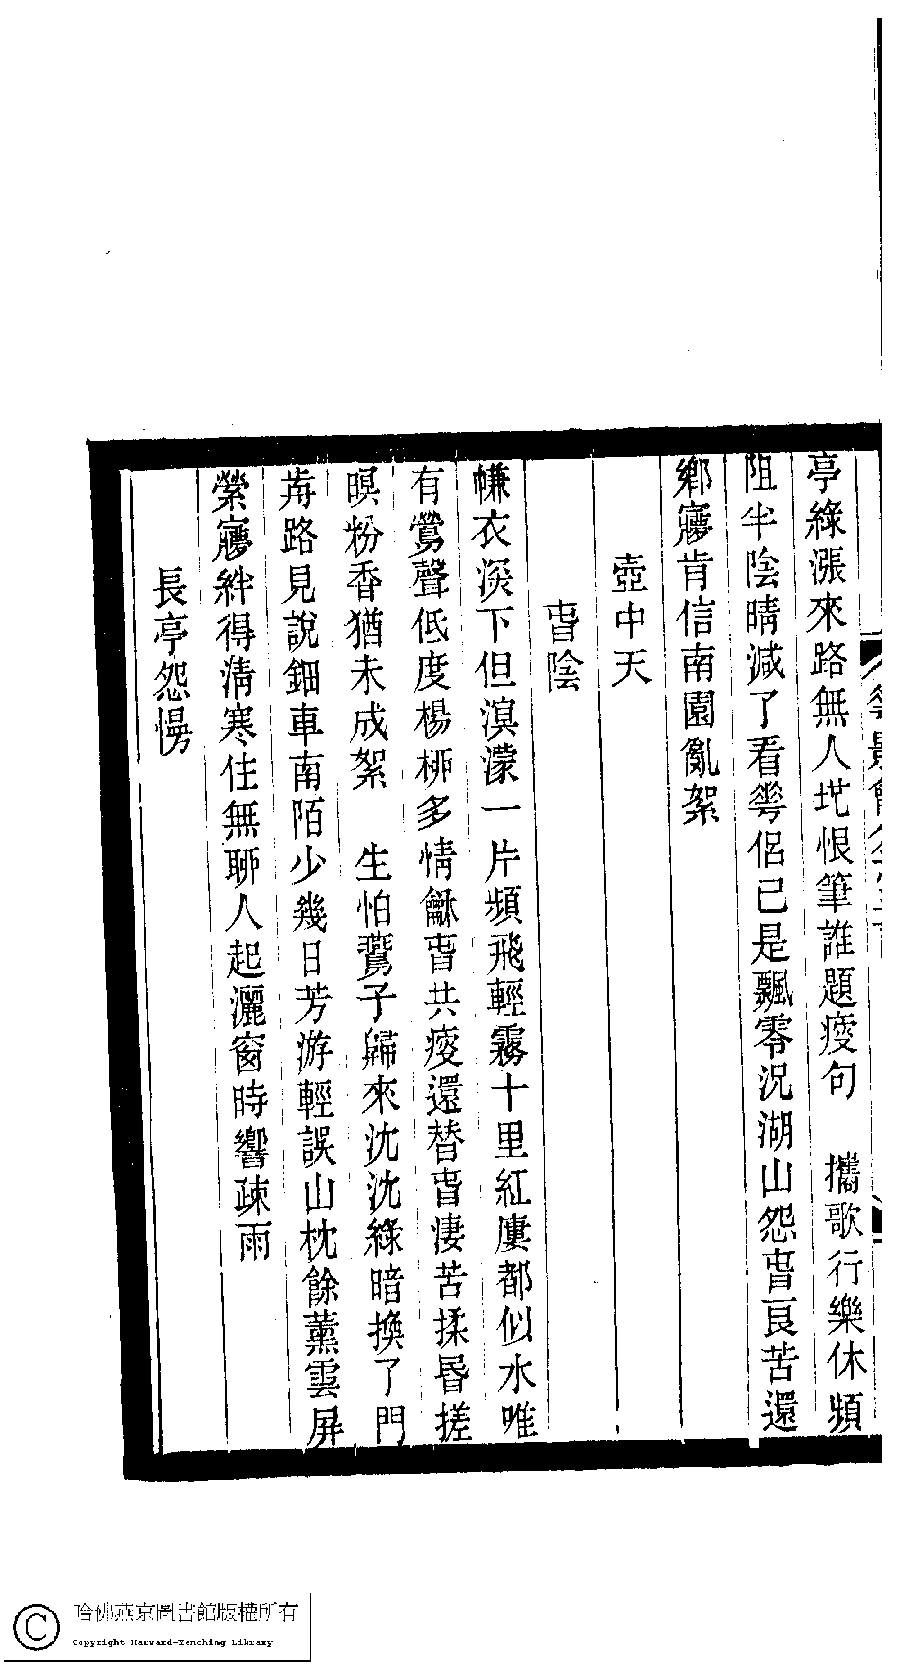 亭綠漲來路無人坨恨筆誰題瘦句　攜歌行樂休頻
阻半陰晴減了看等侶已是飄零況湖山怨旾良苦還
鄉㝱肯信南園亂絮
壺中天
旾陰
㡘衣深下但溟濛一片頻飛輕霧十里紅廔都似水唯
有鶯聲低度楊桺多情龢旾共瘦還替旾淒苦揉昬搓
暝粉香猶未成絮　生怕鷰子歸來沈沈綠暗換了門
歬路見說鈿車南陌少幾日芳游輕誤山枕餘薰雲屏
縈㝱絆得淸寒住無聊人起灑窗時響疎雨
長亭怨慢
哈佛燕京圖書館版權所有
Copyright Harvard-Yenching Library